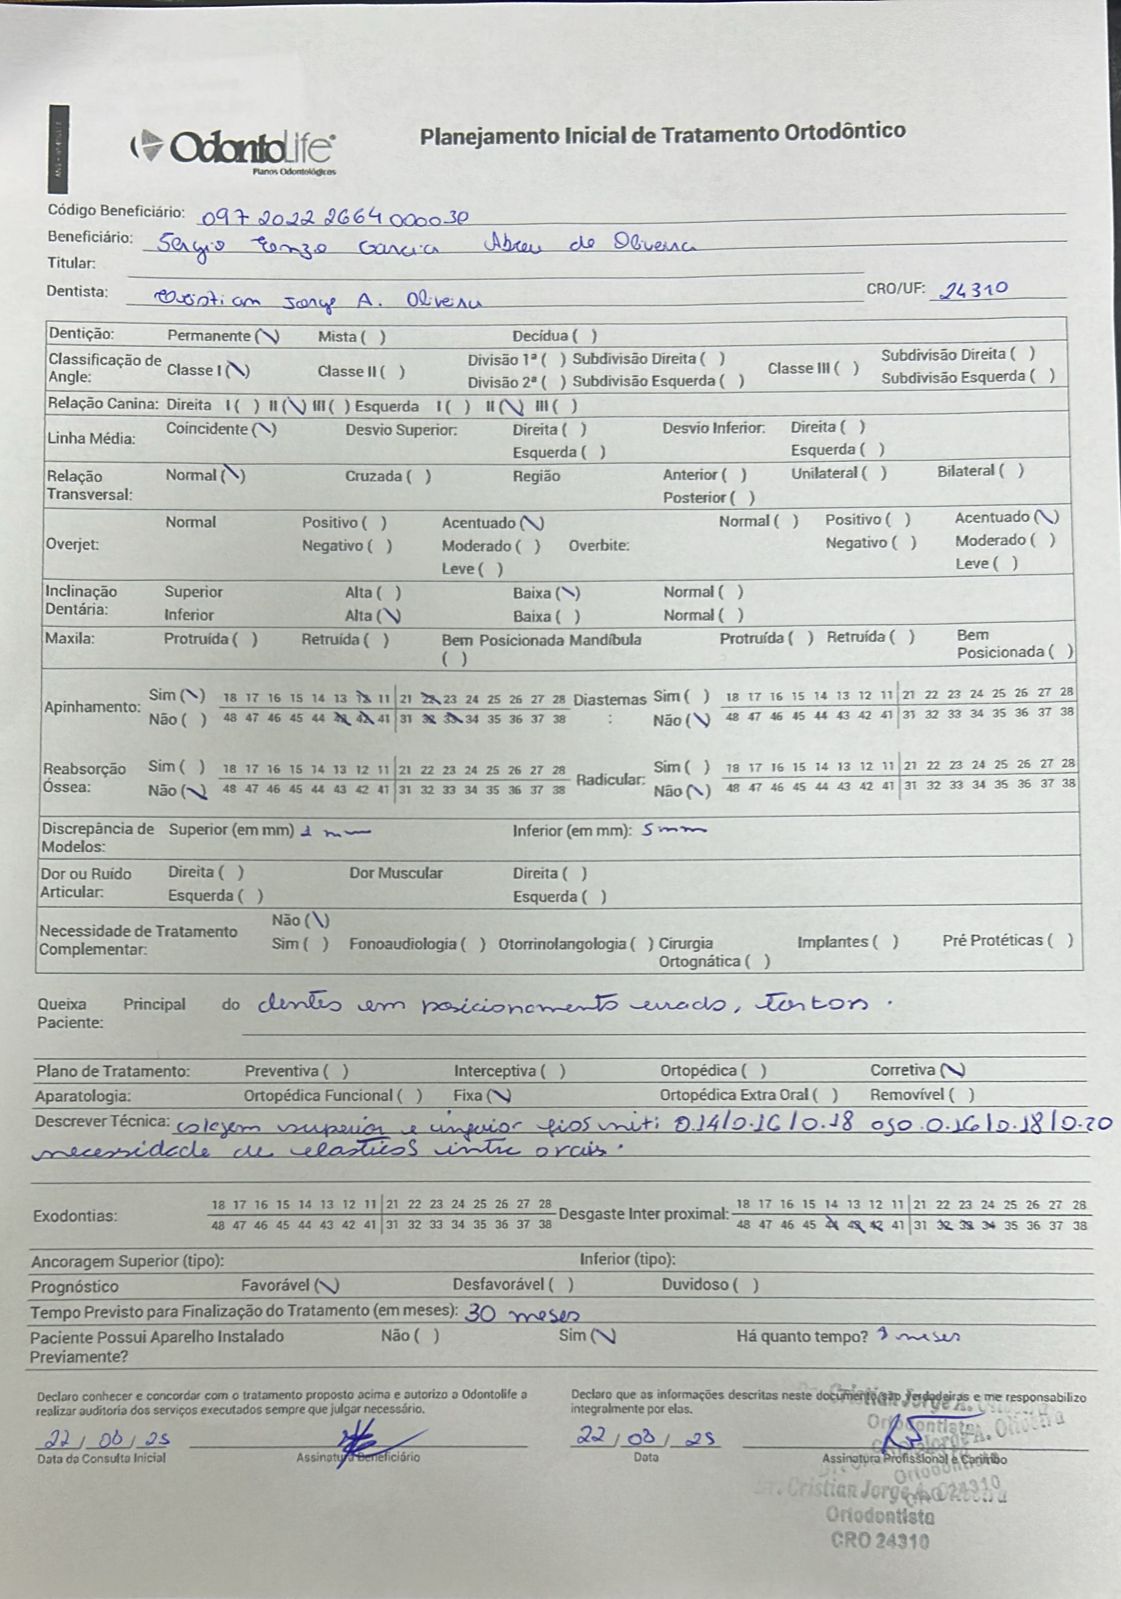 OdontoLife
Planos Odontológicos
Planejamento Inicial de Tratamento Ortodôntico
Código Beneficiário: 097 2022 2664 000030
Beneficiário: Sergio Enzo Garcia Abreu de Oliveira
Titular:
Dentista: Cristiam Jorge A. Oliveira CRO/UF: 24310
Dentição: Permanente (\) Mista ( ) Decídua ( )
Classificação de Angle: Classe I (\) Classe II ( ) Divisão 1ª ( ) Subdivisão Direita ( ) Divisão 2ª ( ) Subdivisão Esquerda ( ) Classe III ( ) Subdivisão Direita ( ) Subdivisão Esquerda ( )
Relação Canina: Direita I ( ) II (\) III ( ) Esquerda I ( ) II (\) III ( )
Linha Média: Coincidente (\) Desvio Superior: Direita ( ) Esquerda ( ) Desvio Inferior: Direita ( ) Esquerda ( )
Relação Transversal: Normal (\) Cruzada ( ) Região Anterior ( ) Posterior ( ) Unilateral ( ) Bilateral ( )
Overjet: Normal Positivo ( ) Negativo ( ) Acentuado (\) Moderado ( ) Leve ( ) Overbite: Normal ( ) Positivo ( ) Negativo ( ) Acentuado (\) Moderado ( ) Leve ( )
Inclinação Dentária: Superior Alta ( ) Baixa (\) Normal ( )
Inferior Alta (\) Baixa ( ) Normal ( )
Maxila: Protruída ( ) Retruída ( ) Bem Posicionada ( ) Mandíbula Protruída ( ) Retruída ( ) Bem Posicionada ( )
Apinhamento: Sim (\) 18 17 16 15 14 13 12 11 21 22 23 24 25 26 27 28 Diastemas: Sim ( ) 18 17 16 15 14 13 12 11 21 22 23 24 25 26 27 28
Não ( ) 48 47 46 45 44 43 42 41 31 32 33 34 35 36 37 38 Não (\) 48 47 46 45 44 43 42 41 31 32 33 34 35 36 37 38
Reabsorção Óssea: Sim ( ) 18 17 16 15 14 13 12 11 21 22 23 24 25 26 27 28 Radicular: Sim ( ) 18 17 16 15 14 13 12 11 21 22 23 24 25 26 27 28
Não (\) 48 47 46 45 44 43 42 41 31 32 33 34 35 36 37 38 Não (\) 48 47 46 45 44 43 42 41 31 32 33 34 35 36 37 38
Discrepância de Modelos: Superior (em mm) mm Inferior (em mm): 5mm
Dor ou Ruído Articular: Direita ( ) Esquerda ( ) Dor Muscular Direita ( ) Esquerda ( )
Necessidade de Tratamento Complementar: Não (\) Sim ( ) Fonoaudiologia ( ) Otorrinolangologia ( ) Cirurgia Ortognática ( ) Implantes ( ) Pré Protéticas ( )
Queixa Principal do Paciente: dentes em posicionamento errado, tortos.
Plano de Tratamento: Preventiva ( ) Interceptiva ( ) Ortopédica ( ) Corretiva (\)
Aparatologia: Ortopédica Funcional ( ) Fixa (\) Ortopédica Extra Oral ( ) Removível ( )
Descrever Técnica: colagem superior e inferior fios niti 0.14/0.16/0.18 aço 0.16/0.18/0.20
necessidade de elasticos intra orais.
Exodontias: 18 17 16 15 14 13 12 11 21 22 23 24 25 26 27 28 Desgaste Inter proximal: 18 17 16 15 14 13 12 11 21 22 23 24 25 26 27 28
48 47 46 45 44 43 42 41 31 32 33 34 35 36 37 38 48 47 46 45 44 43 42 41 31 32 33 34 35 36 37 38
Ancoragem Superior (tipo): Inferior (tipo):
Prognóstico Favorável (\) Desfavorável ( ) Duvidoso ( )
Tempo Previsto para Finalização do Tratamento (em meses): 30 meses
Paciente Possui Aparelho Instalado Previamente? Não ( ) Sim (\) Há quanto tempo? meses
Declaro conhecer e concordar com o tratamento proposto acima e autorizo a Odontolife a
realizar auditoria dos serviços executados sempre que julgar necessário.
Declaro que as informações descritas neste documento são verdadeiras e me responsabilizo
integralmente por elas.
22/08/25 22/08/25
Data da Consulta Inicial Assinatura Beneficiário Data Assinatura Profissional e Carimbo
Dr. Cristian Jorge A. Oliveira
Ortodontista
CRO 24310